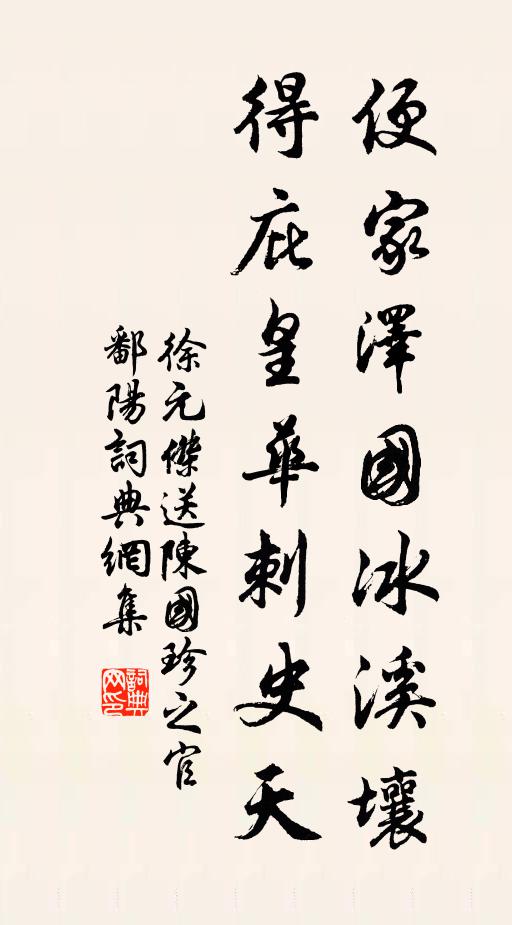 便家澤國冰溪壤
得庇皇華刺史天
徐元傑送陳國珍之官
鄱陽詞典網集
詞典网印